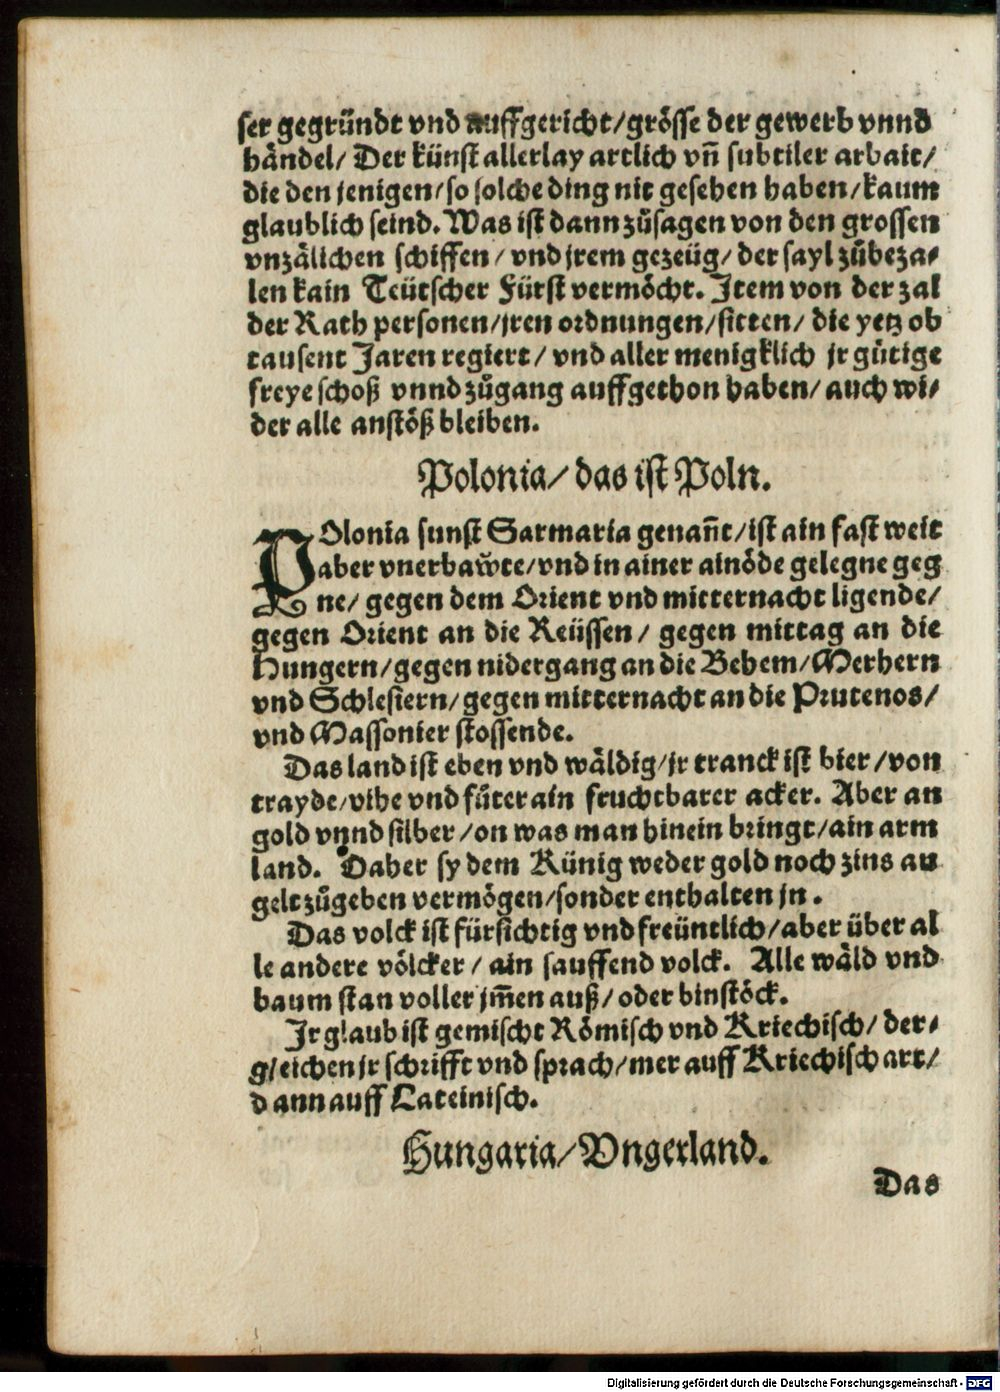 ser gegründt vnd auffgericht/grösse der gewerb vnnd
händel/ Der künst allerlay artlich vñ subtiler arbait/
die den jenigen/so solche ding nit gesehen haben/kaum
glaublich seind. Was ist dann zůsagen von den grossen
vnzälichen schiffen/ vnd jrem gezeüg/ der sayl zůbeza⸗
len kain Teütscher Fürst vermöcht. Jtem von der zal
der Rath personen/jren ordnungen/sitten/ die yetz ob
tausent Jaren regiert/ vnd aller menigklich jr gütige
freye schoß vnnd zůgang auffgethon haben/ auch wi⸗
der alle anstöß bleiben.
Polonia/ das ist Poln.
POlonia sunst Sarmatia genañt/ist ain fast weit
aber vnerbaw̃te/vnd in ainer ainöde gelegne geg
ne/ gegen dem Orient vnd mitternacht ligende/
gegen Orient an die Reüssen/ gegen mittag an die
Hungern/gegen nidergang an die Behem/Merhern
vnd Schlesiern/gegen mitternacht an die Prutenos/
vnd Massonier stossende.
Das land ist eben vnd wäldig/jr tranck ist bier/von
trayde/vihe vnd fůter ain fruchtbarer acker. Aber an
gold vnnd silber/on was man hinein bringt/ain arm
land. Daher sy dem Künig weder gold noch zins an
gelt zůgeben vermögen/sonder enthalten jn.
Das volck ist fürsichtig vnd freüntlich/aber über al
le andere völcker/ ain sauffend volck. Alle wäld vnd
baum stan voller jm̃en auß/oder binstöck.
Jr glaub ist gemischt Römisch vnd Kriechisch/ der⸗
gleichen jr schrifft vnd sprach/mer auff Kriechisch art/
dann auff Lateinisch.
Hungaria/Vngerland.
Das
Digitalisierung gefördert durch die Deutsche Forschungsgemeinschaft - DFG